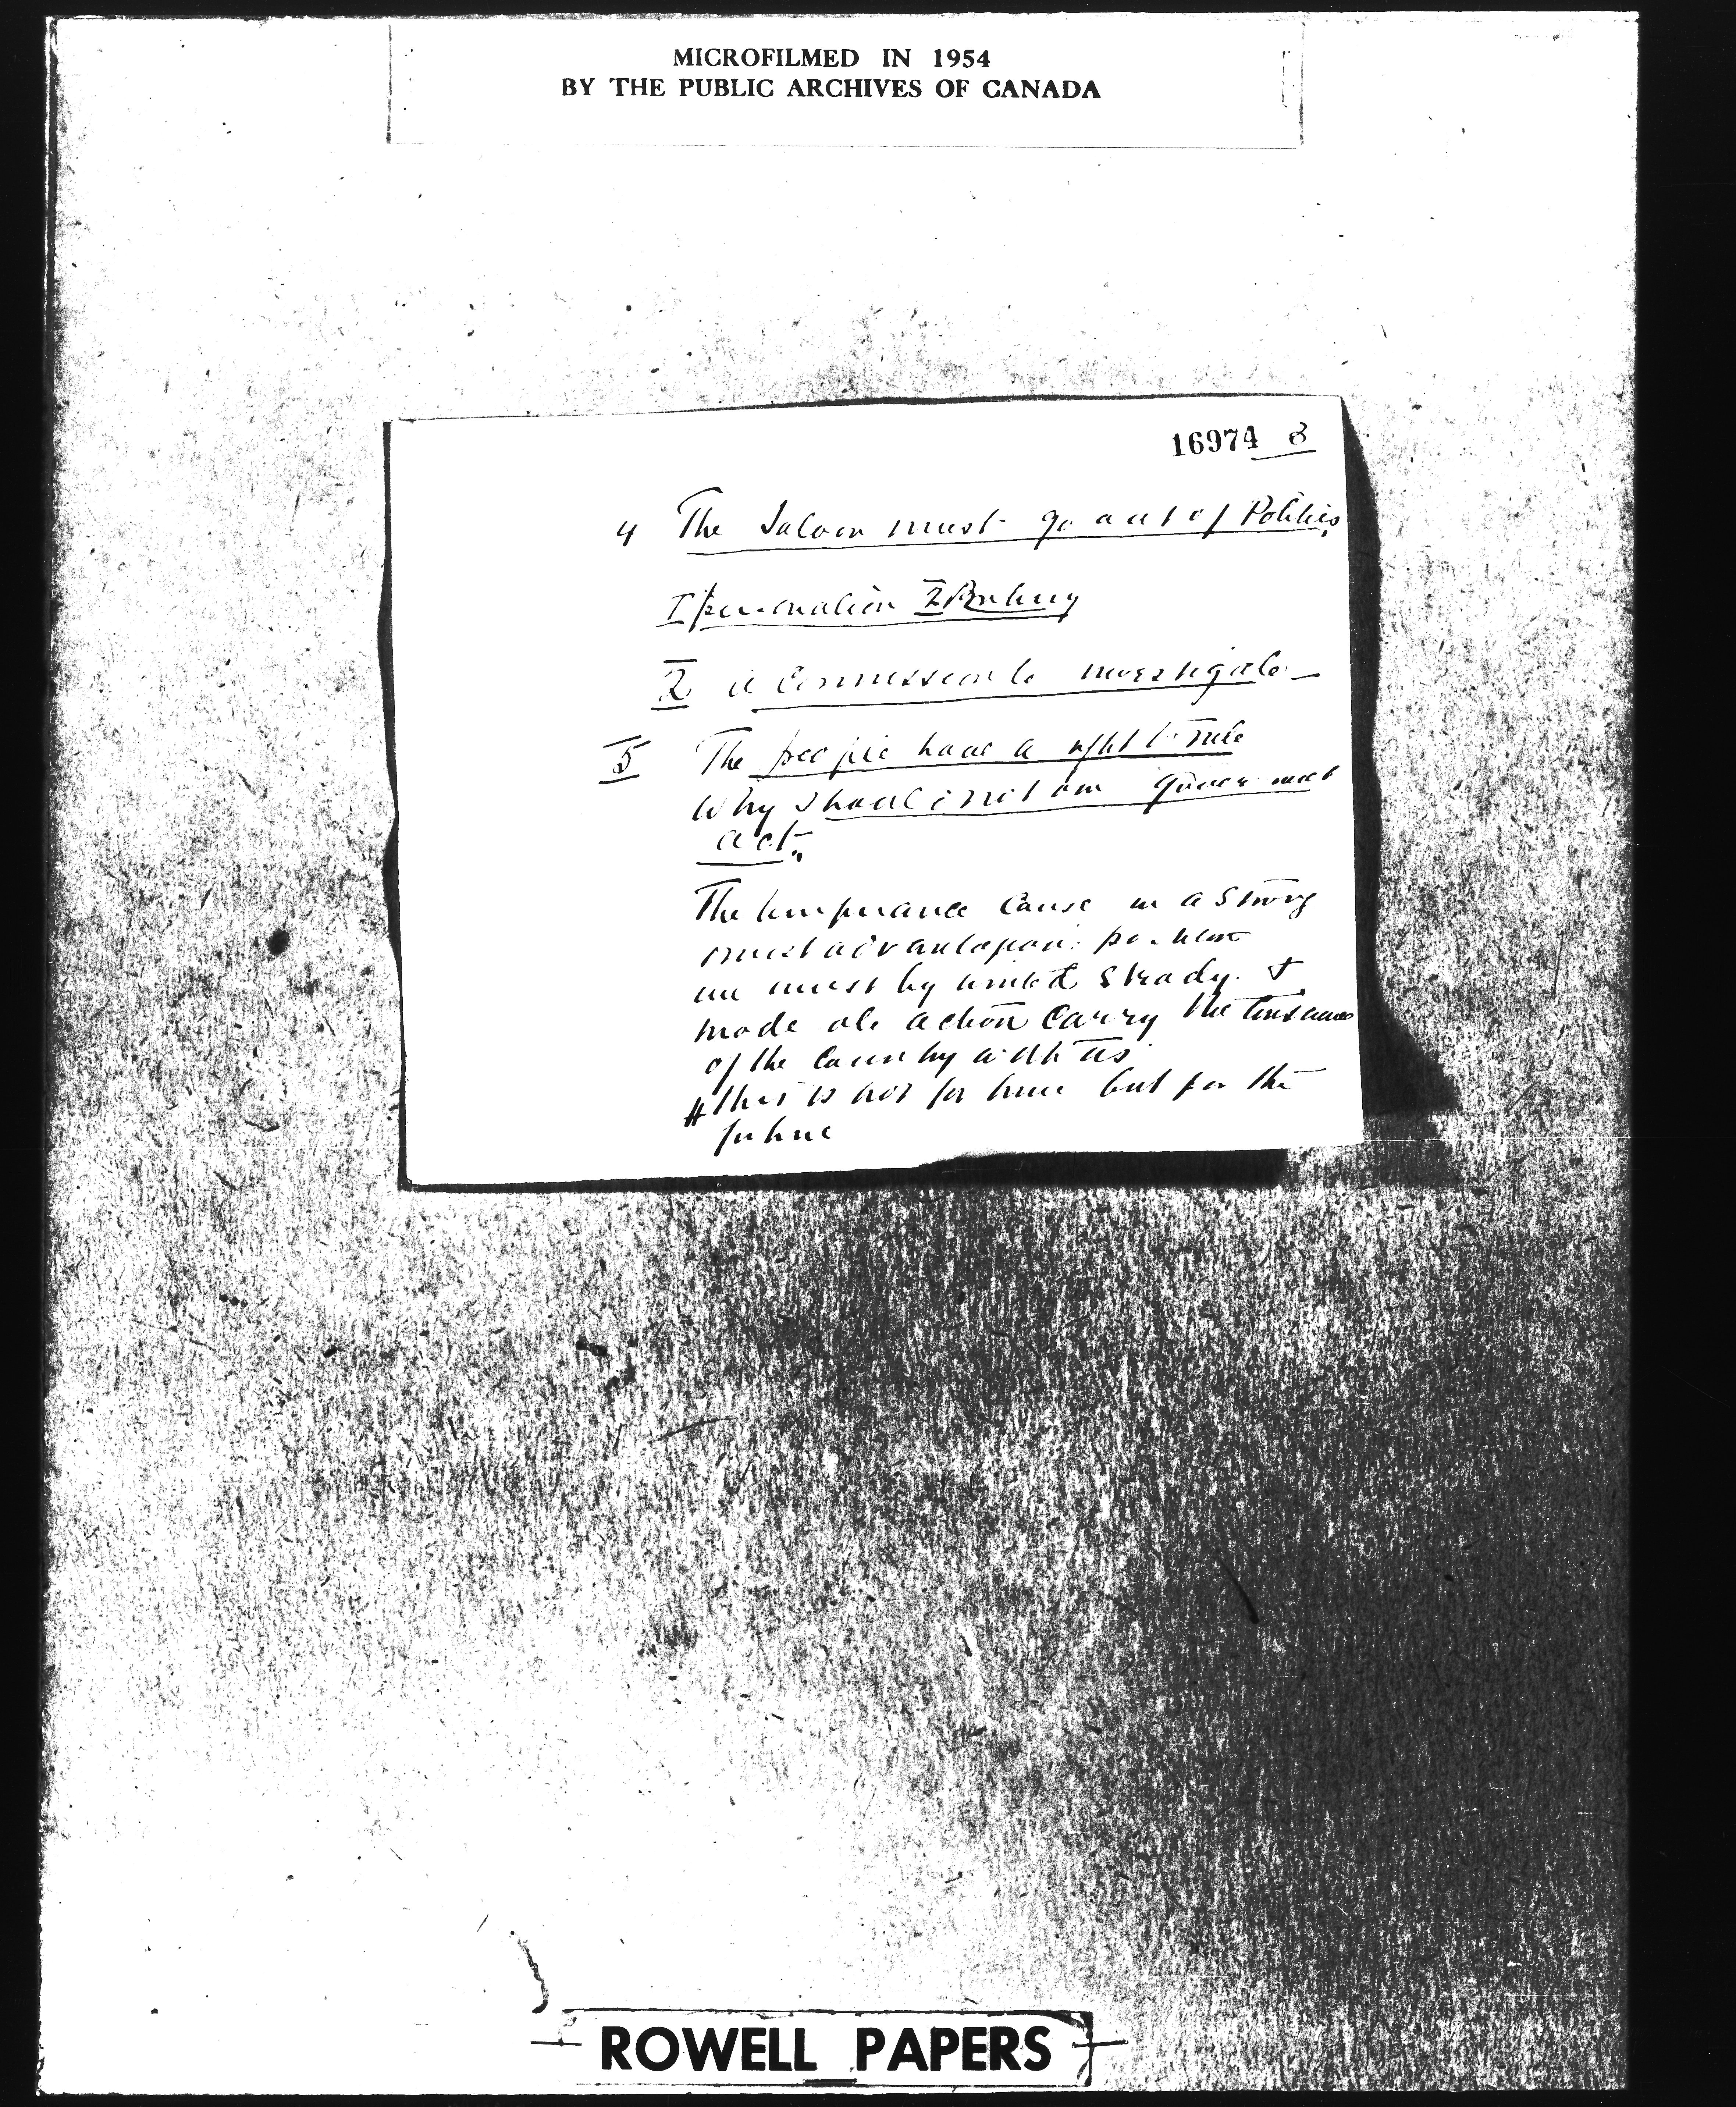 MICROFILMED IN 1954
BY THE PUBLIC ARCHIVES OF CANADA
16974 8
4 The Saloon must go out of Politics
I personation 2 Bribery
2 a Commission to investigate
5 The people have a right to rule
Why should not our government
act.
The temperance cause in a strong
must advantageous position
we must by united steady &
moderate action carry the
of the country with us
this is not for time but for the
future
ROWELL PAPERS